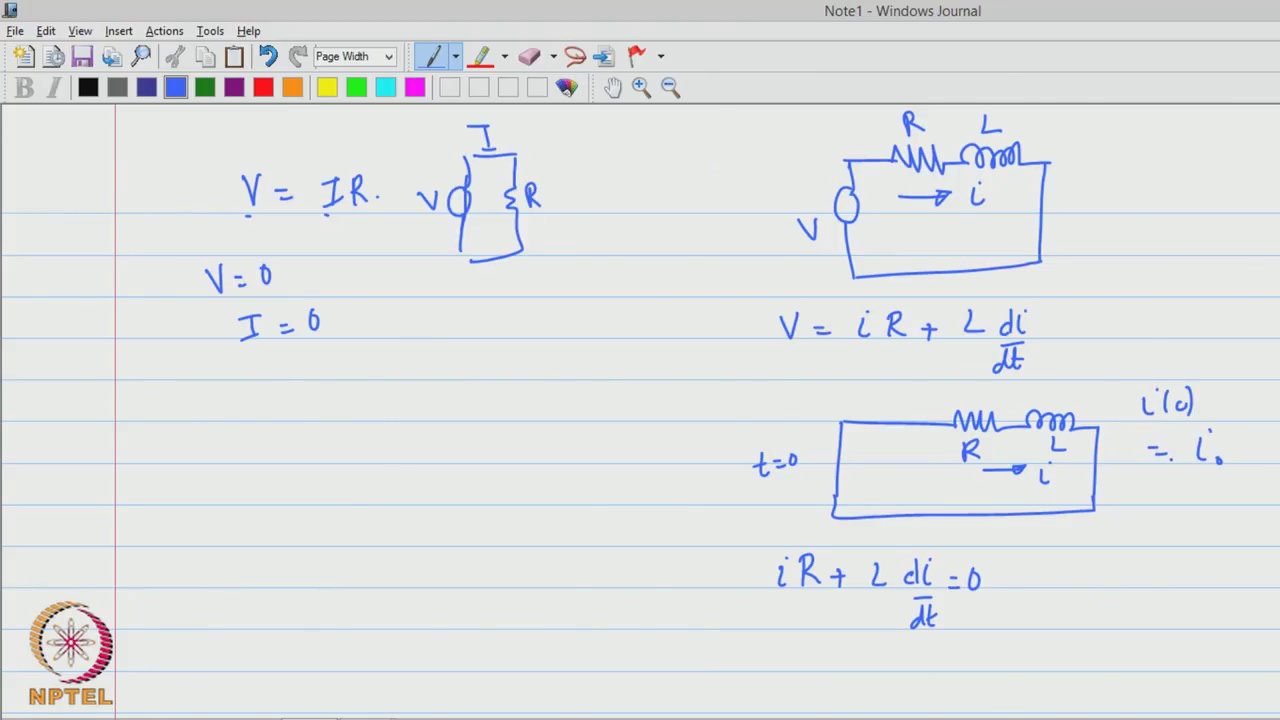 Note1 - Windows Journal
File Edit View Insert Actions Tools Help
Page Width
B I
I
V = IR.
V
R
V = 0
I = 0
R L
i
V
V = iR + L di/dt
i(0)
= i₀
t=0
R L
i
iR + L di/dt = 0
NPTEL